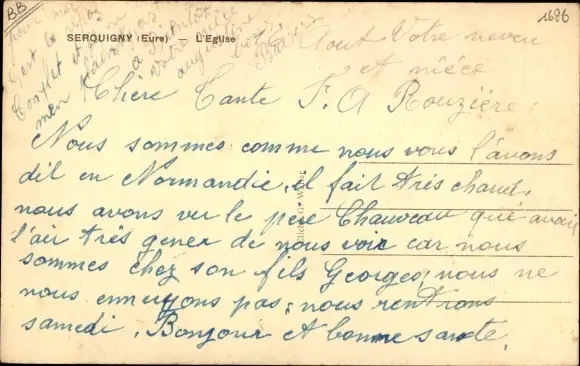 BB
1686
SERQUIGNY (Eure) — L'Eglise
Votre neveu
et nièce
F. A Rouzière
Chere Tante
Nous sommes comme nous vous l'avons
dit en Normandie, il fait très chaud,
nous avons vu le père Chauveau qui avait
l'air très gener de nous voir car nous
sommes chez son fils Georges, nous ne
nous ennuyons pas, nous rentrons
samedi. Bonjour et bonne sante.